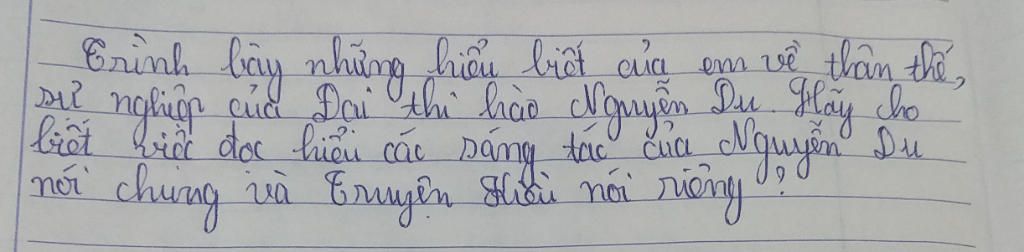 Trình bày những hiểu biết của em về thân thế,
sự nghiệp của Đại thi hào Nguyễn Du. Hãy cho
biết việc đọc hiểu các sáng tác của Nguyễn Du
nói chung và Truyện Kiều nói riêng?